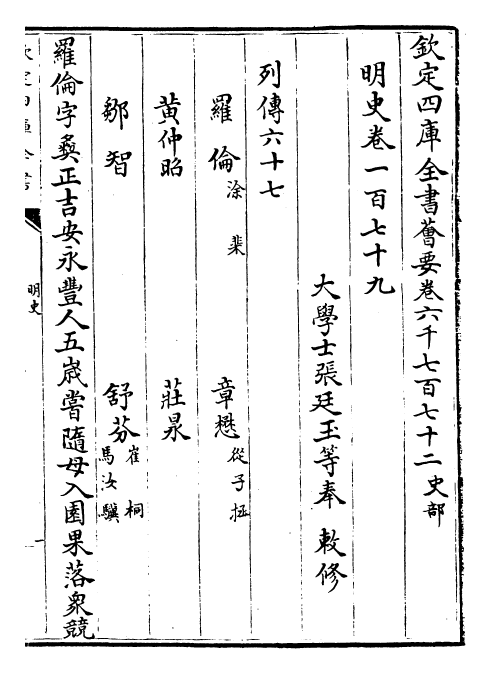 欽定四庫全書薈要卷六千七百七十二 史部
明史卷一百七十九
大學士張廷玉等奉 敕修
列傳六十七
羅倫 涂棐 章懋 從子拯
黃仲昭 莊㫤
鄒智 舒芬 崔桐 馬汝驥
羅倫字彛正吉安永豐人五歲嘗隨母入園果落衆競
明史
一